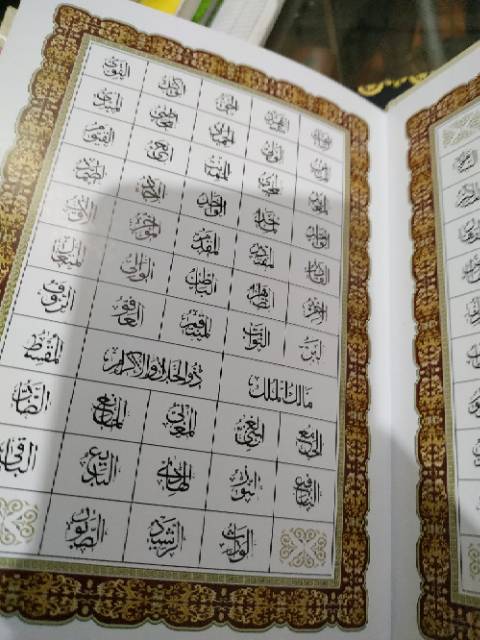 الباعث الشهيد الحق الوكيل القوي
المتين الولي الحميد المحصي المبدئ
المعيد المحيي المميت الحي القيوم
الواجد الماجد الواحد الأحد الصمد
القادر المقتدر المقدم المؤخر الأول
الآخر الظاهر الباطن الوالي المتعال
البر التواب المنتقم العفو الرؤوف
مالك الملك ذو الجلال والإكرام المقسط
الجامع الغني المغني المانع الضار
النافع النور الهادي البديع الباقي
الوارث الرشيد الصبور